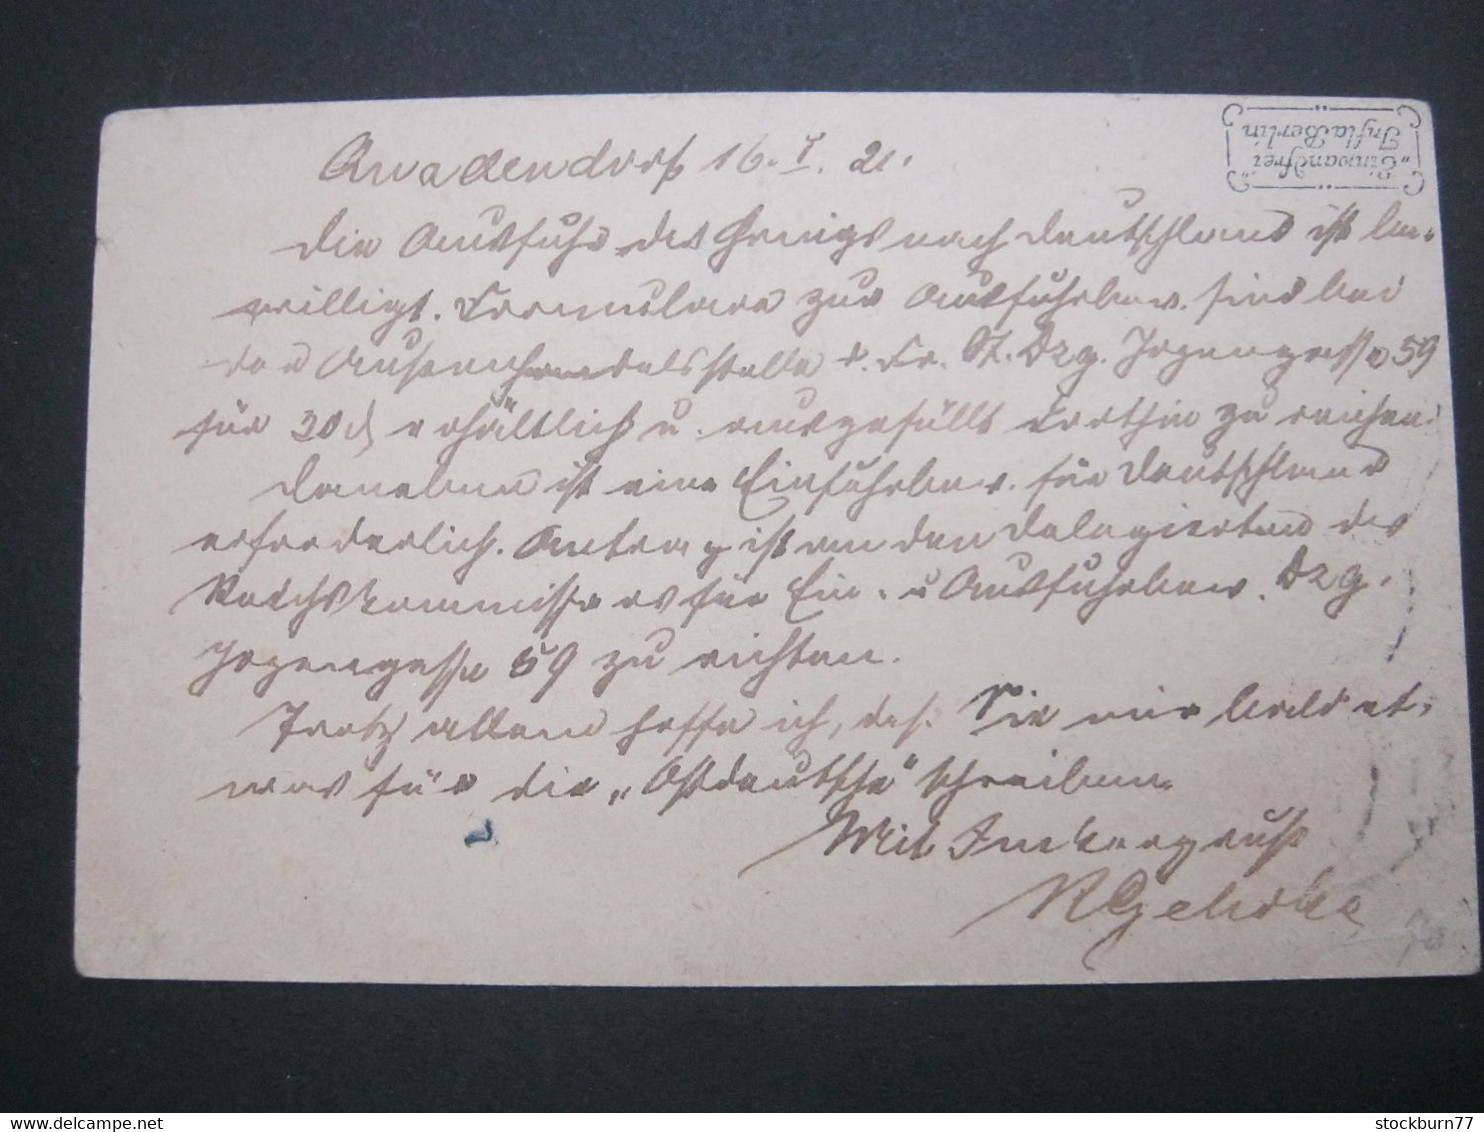 Quadendorf 16. I. 21.
Die Ausfuhr des Honigs nach Deutschland ist be-
willigt. Formulare zur Ausfuhrbew. sind bei
der Aussenhandelsstelle d. Fr. St. Dzg. Jopengasse 59
für 30 d erhältlich u. ausgefüllt dorthin zu reichen.
Daneben ist eine Einfuhrbew. für Deutschland
erforderlich. Antrag ist an den Delegierten des
Reichskommissars für Ein- u Ausfuhrbew. Dzg.
Jopengasse 59 zu richten.
Trotz allem hoffe ich, daß Sie mir bald et-
was für die „Ostdeutsche" schreiben.
Mit Imkergruß
Gehrke
„Einwandfrei"
Infla Berlin
stockburn77